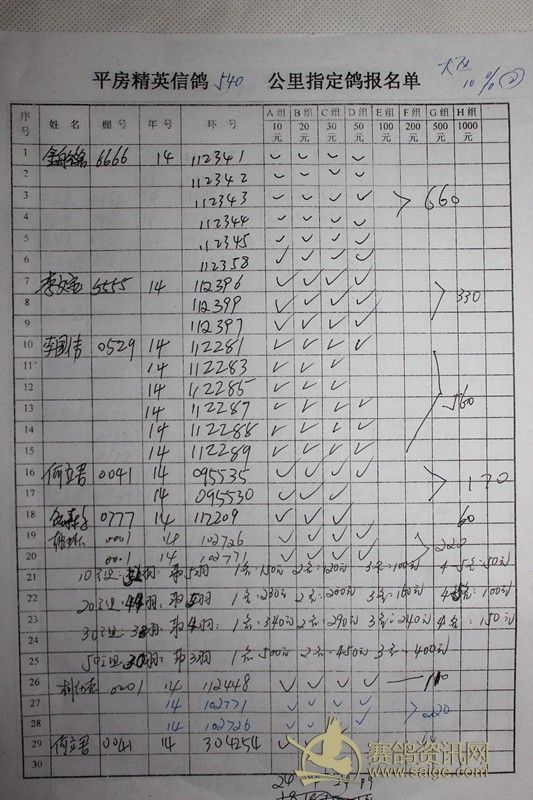 平房精英信鸽 540 公里指定鸽报名单
大区
10%
序号 姓名 棚号 年号 环号 A组 10元 B组 20元 C组 30元 D组 50元 E组 100元 F组 200元 G组 500元 H组 1000元
1 6666 14 112341 ✓ ✓ ✓ ✓
2 112342 ✓ ✓ ✓ ✓
3 112343 ✓ ✓ ✓ ✓ 660
4 112344 ✓ ✓ ✓ ✓
5 112345 ✓ ✓ ✓ ✓
6 112358 ✓ ✓ ✓ ✓
7 5555 14 112396 ✓ ✓ ✓ ✓
8 112399 ✓ ✓ ✓ ✓ 330
9 112397 ✓ ✓ ✓ ✓
10 李国伟 0529 14 112281 ✓ ✓ ✓ ✓
11 14 112283 ✓ ✓ ✓
12 14 112285 ✓ ✓ ✓
13 14 112287 ✓ ✓ ✓ ✓ 560
14 14 112288 ✓ ✓ ✓ ✓
15 14 112289 ✓ ✓ ✓ ✓
16 何立君 0041 14 095535 ✓ ✓ ✓ ✓
17 14 095530 ✓ ✓ ✓ 170
18 0777 14 112209 ✓ ✓ ✓ 60
19 0001 14 102726 ✓ ✓ ✓ ✓
20 0001 14 102771 ✓ ✓ ✓ ✓ 220
21 10元组: 羽: 取5羽 1名:150元 2名:120元 3名:100元 4-5名:50元
22 20元组: 羽: 取5羽 1名:230元 2名:200元 3名:160元 100元
23 30元组: 羽: 取4羽: 1名:340元 2名:290元 3名:240元 4名:150元
24
25 50元组: 羽: 取3羽 1名:500元 2名:450元 3名:400元
26 0001 14 112448 ✓ ✓ ✓ ✓ 110
27 14 102771 ✓ ✓ ✓ ✓
28 14 102726 ✓ ✓ ✓ ✓ 220
29 何立君 0041 14 304254 ✓
30
赛鸽资讯网
www.saige.com